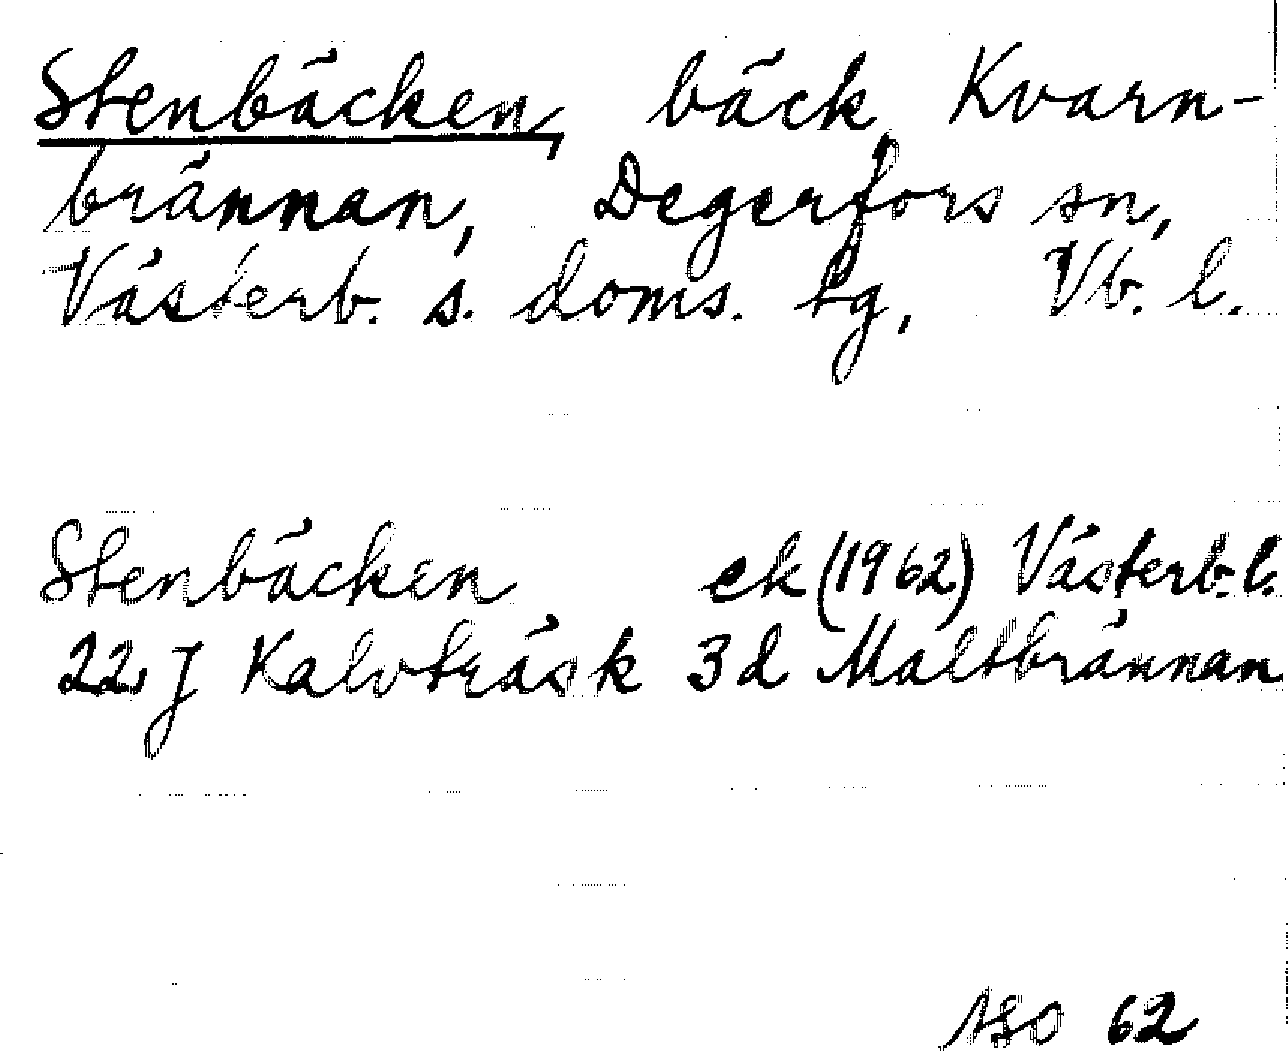 Stenbäcken, bäck, Kvarn-
brännan, Degerfors sn,
Västerb. s. doms. tg, Vb. l.
Stenbäcken ek (1962) Västerb. l.
22 J Kalvträsk 3d Maltbrännan
62